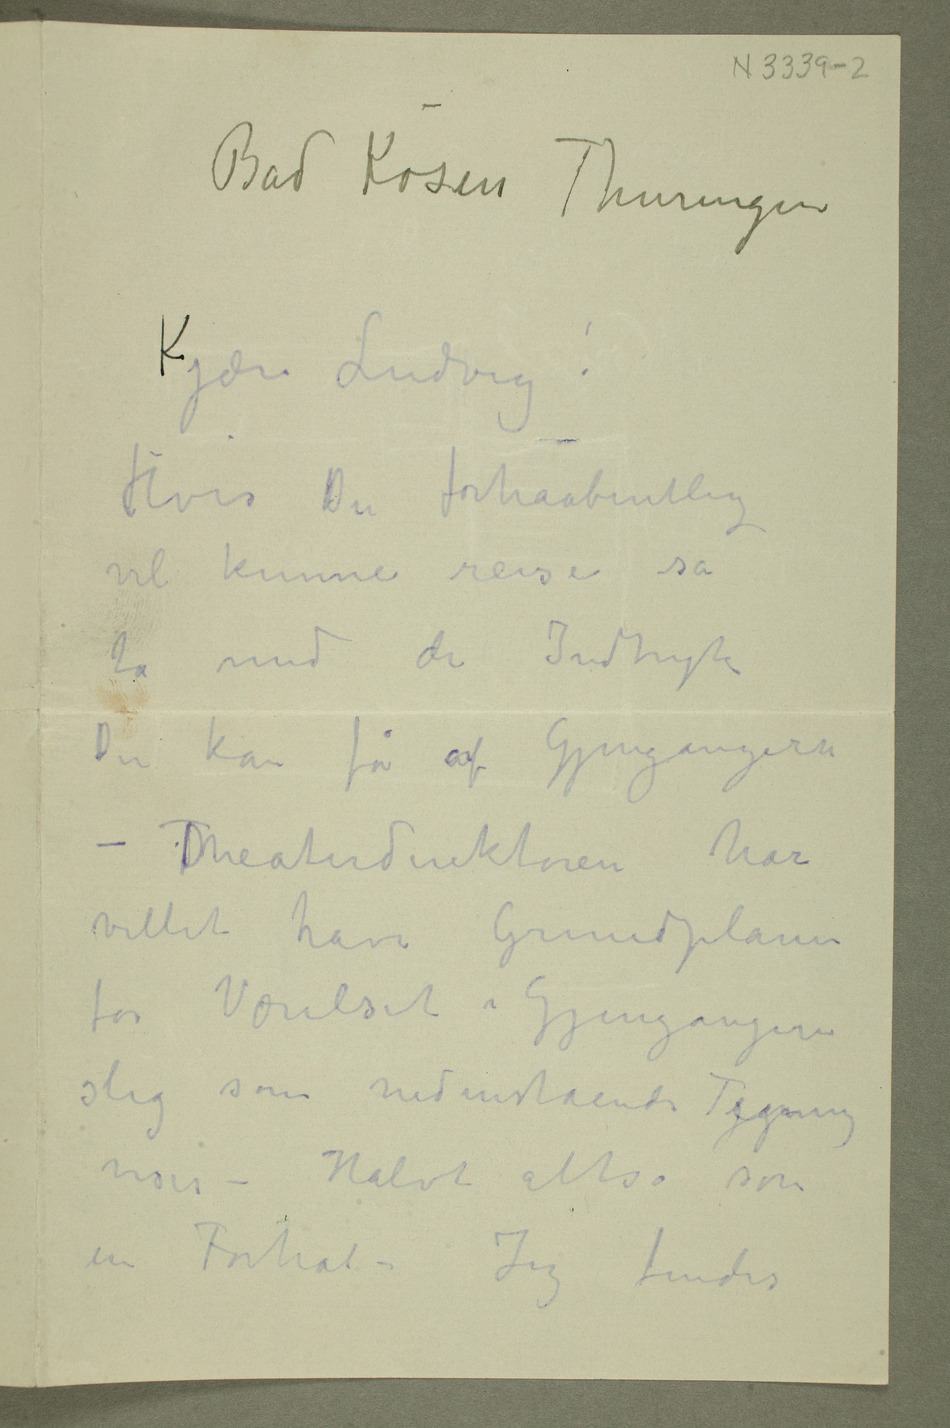 N 3339-2
Bad Kösen Thuringen
Kjære Ludvig!
Hvis Du forhaabentlig
vil kunne reise så
ta med de Indtryk
Du kan få af Gjengangere
– Theaterdirektøren har
villet have Grundplanen
for Værelset i Gjengangere
slig som nedenstaaende Tegning
viser – Halvt altså som
en Forhal – Jeg findes